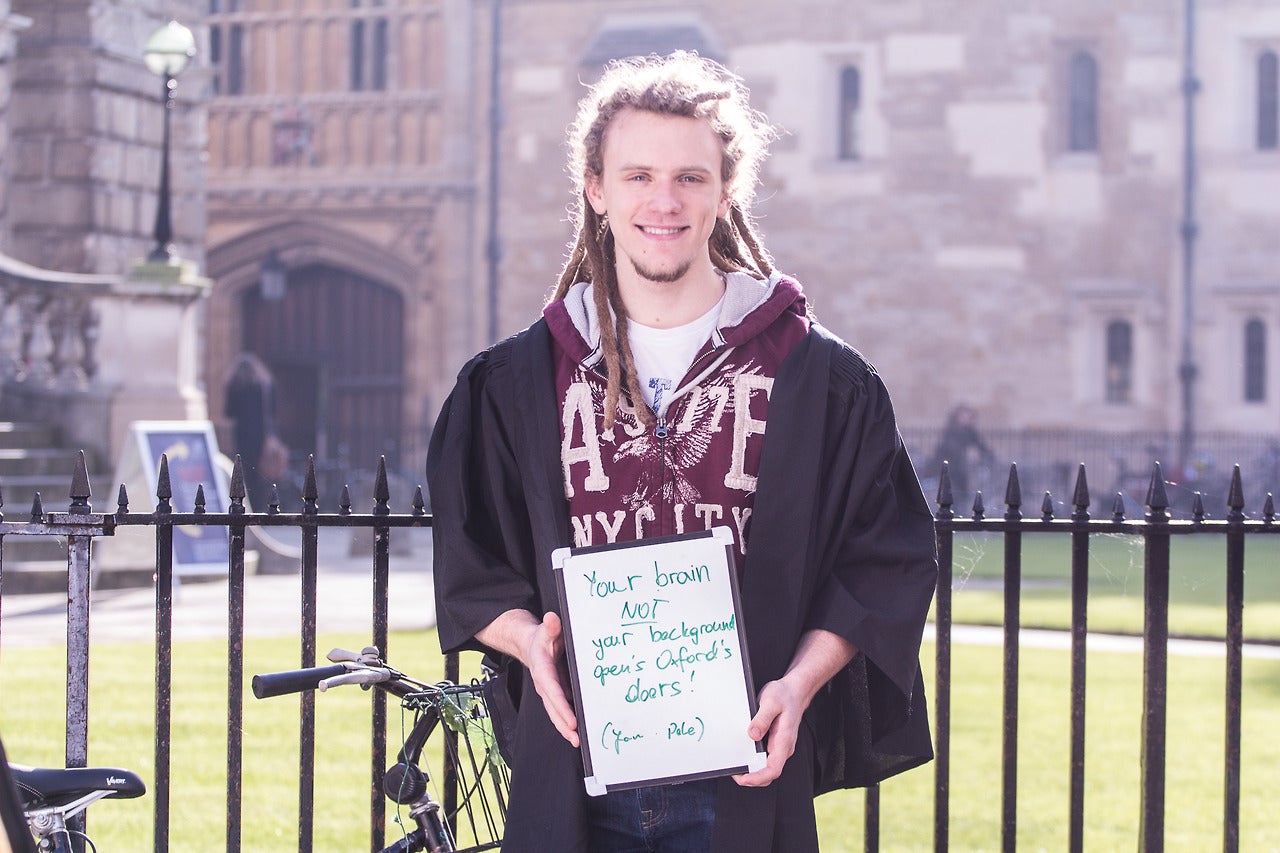 A
E
NYC CITY
Your brain
NOT
your background
open's Oxford's
doors!